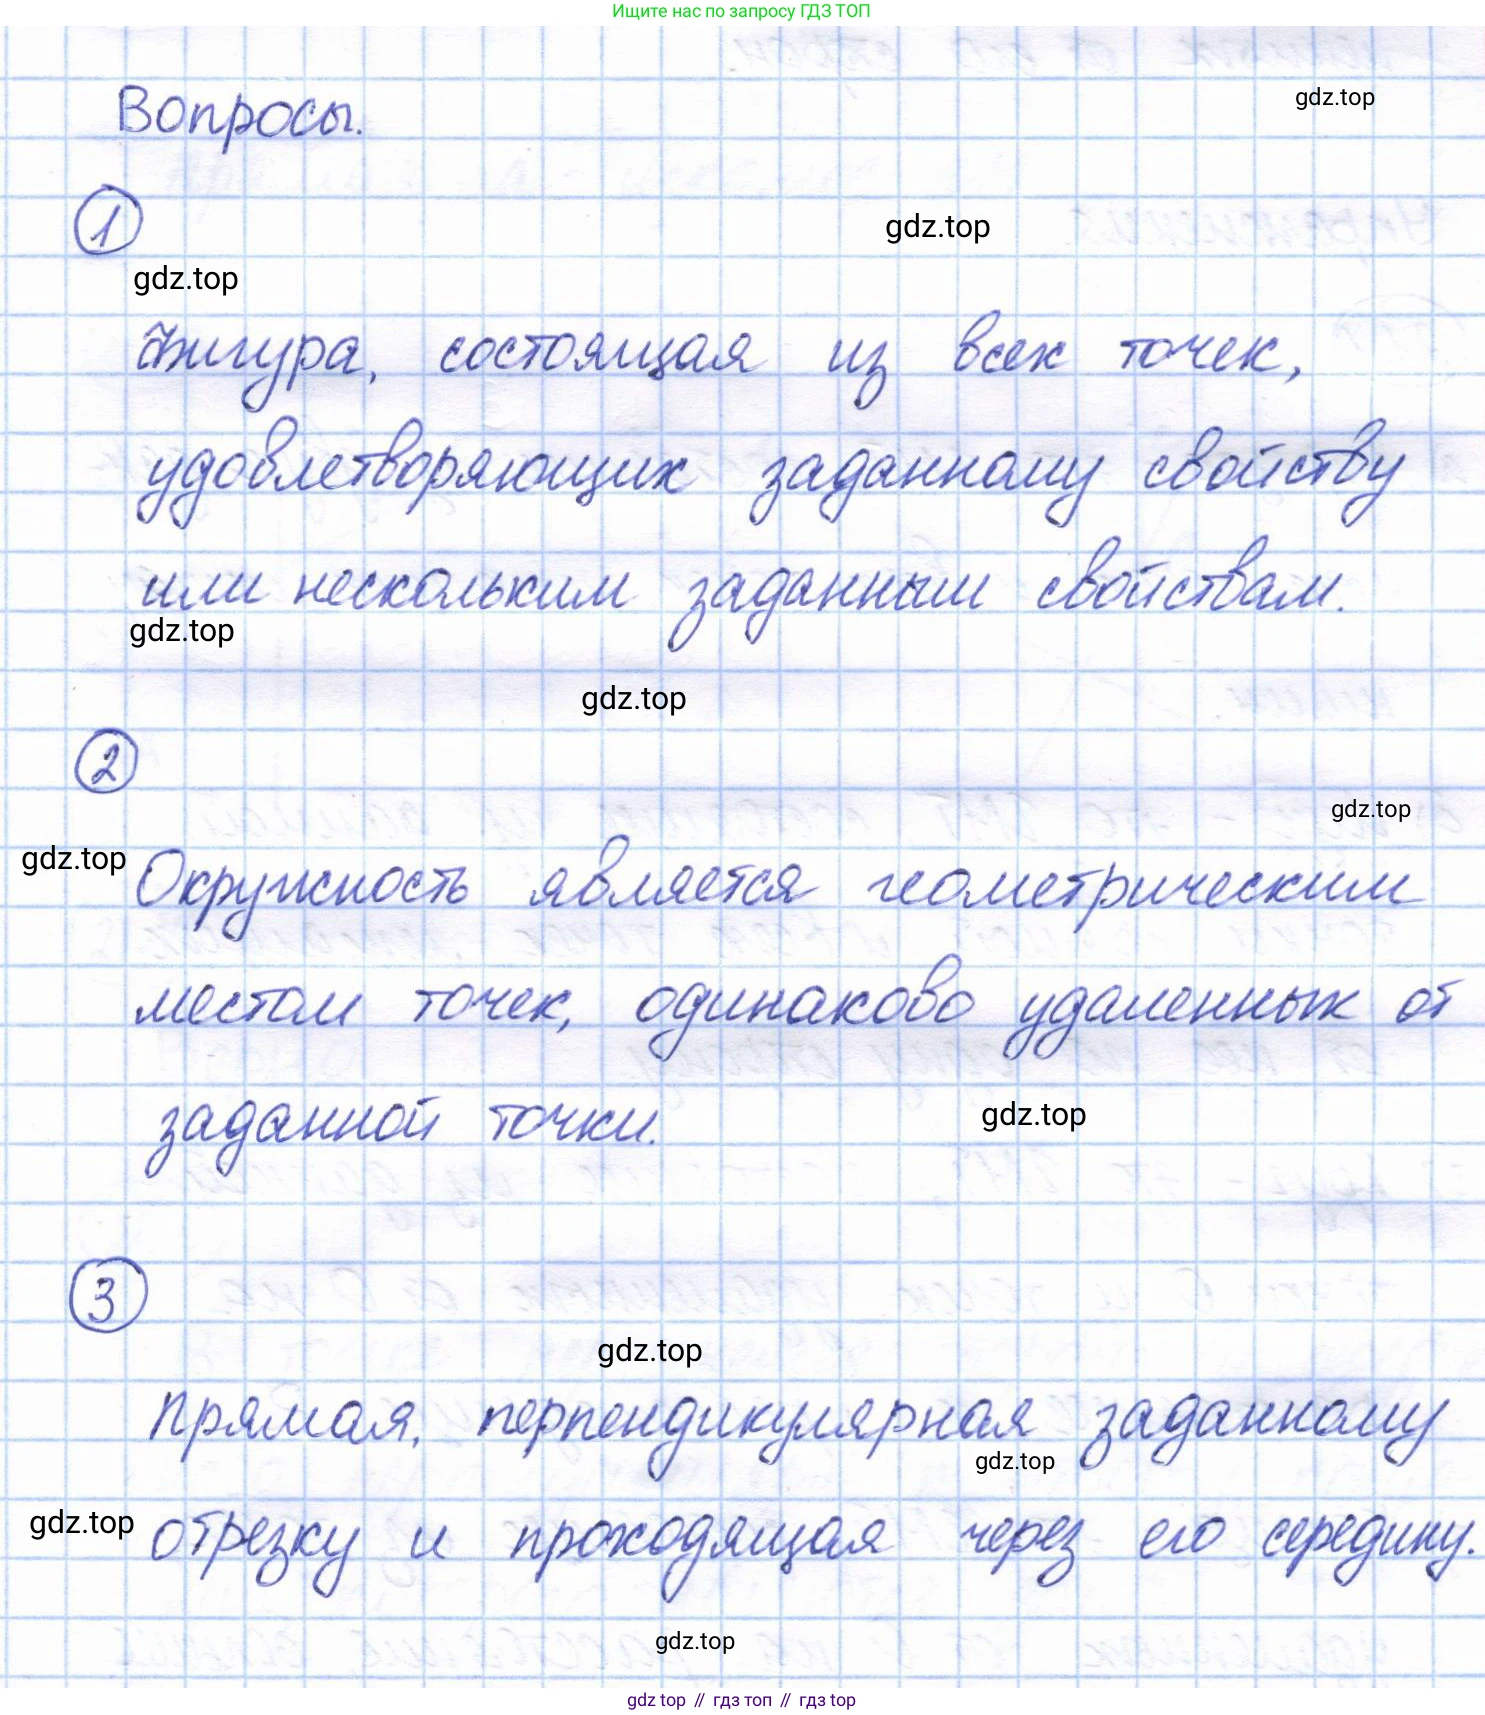 Ищите нас по запросу ГДЗ ТОП
Вопросы.
gdz.top
1
gdz.top
gdz.top
Фигура, состоящая из всех точек,
удовлетворяющих заданному свойству
или нескольким заданным свойствам.
gdz.top
gdz.top
2
gdz.top
gdz.top
Окружность является геометрическим
местом точек, одинаково удаленных от
заданной точки.
gdz.top
3
gdz.top
Прямая, перпендикулярная заданному
gdz.top
gdz.top
отрезку и проходящая через его середину.
gdz.top
gdz top // гдз топ // gdz top